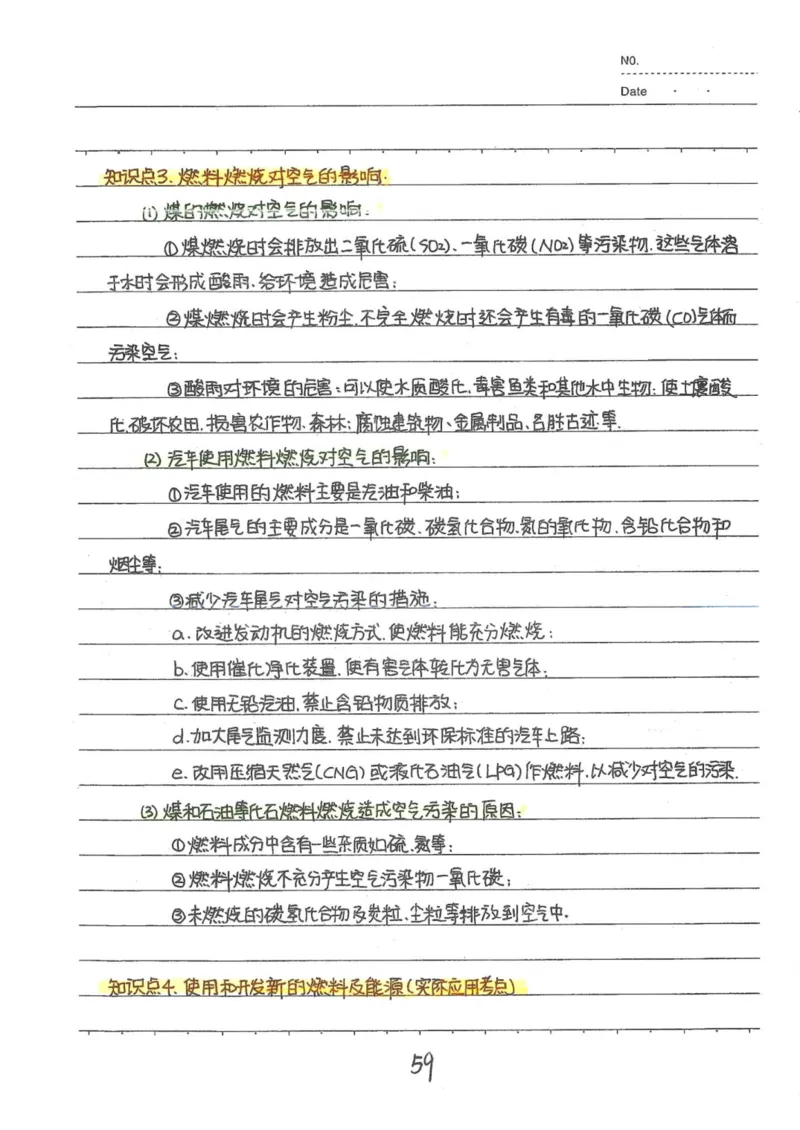 NO.
Date
知识点3.燃料燃烧对空气的影响.
(1)煤的燃烧对空气的影响:
①煤燃烧时会排放出二氧化硫(SO2)、一氧化碳(NO2)等污染物.这些气体溶
于水时会形成酸雨、给环境造成危害;
②煤燃烧时会产生粉尘.不完全燃烧时还会产生有毒的一氧化碳(CO)气体而
污染空气;
③酸雨对环境的危害:可以使水质酸化.毒害鱼类和其他水中生物;使土壤酸
化.破坏农田.损害农作物、森林;腐蚀建筑物、金属制品、名胜古迹等.
(2)汽车使用燃料燃烧对空气的影响:
①汽车使用的燃料主要是汽油和柴油;
②汽车尾气的主要成分是一氧化碳、碳氢化合物.氮的氧化物、含铅化合物和
烟尘等;
③减少汽车尾气对空气污染的措施:
a.改进发动机的燃烧方式.使燃料能充分燃烧;
b.使用催化净化装置.使有害气体转化为无害气体;
c.使用无铅汽油.禁止含铅物质排放;
d.加大尾气监测力度.禁止未达到环保标准的汽车上路;
e.改用压缩天然气(CNG)或液化石油气(LPG)作燃料.以减少对空气的污染.
(3)煤和石油等化石燃料燃烧造成空气污染的原因:
①燃料成分中含有一些杂质如硫.氮等;
②燃料燃烧不充分产生空气污染物一氧化碳;
③未燃烧的碳氢化合物及炭粒、尘粒等排放到空气中.
知识点4.使用和开发新的燃料及能源(实际应用考点)
59